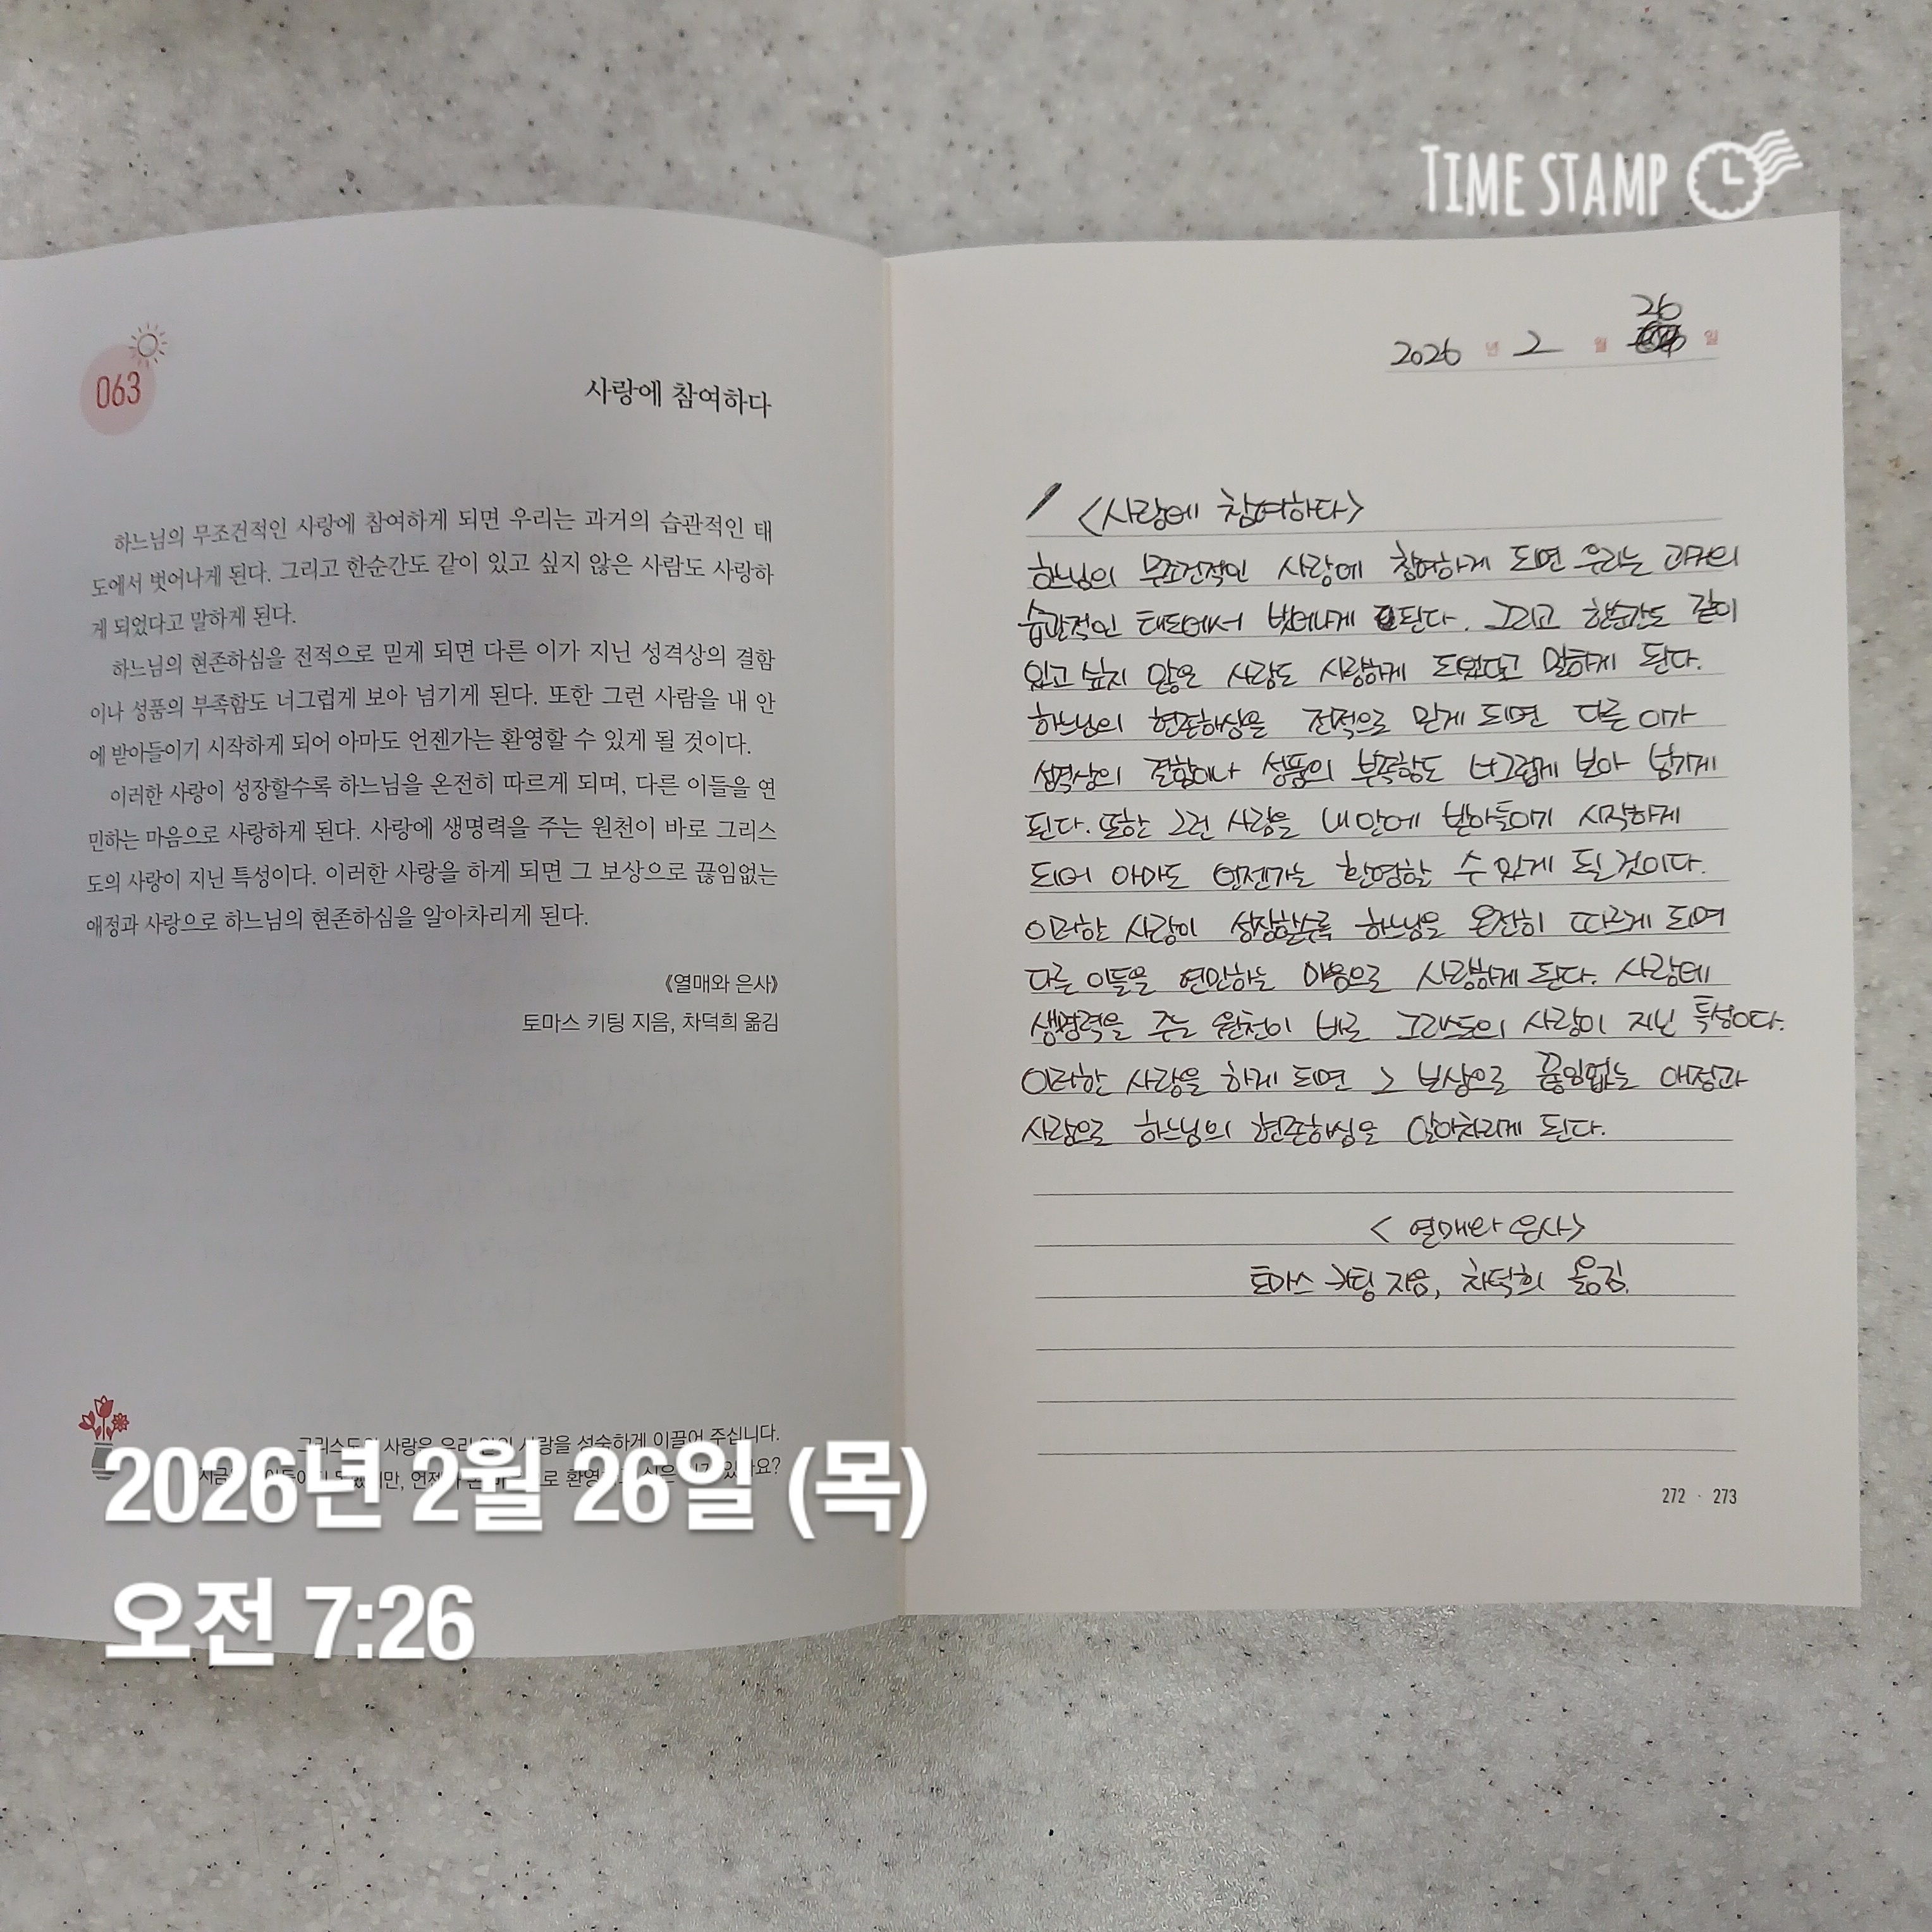 TIME STAMP
063
사랑에 참여하다
하느님의 무조건적인 사랑에 참여하게 되면 우리는 과거의 습관적인 태
도에서 벗어나게 된다. 그리고 한순간도 같이 있고 싶지 않은 사람도 사랑하
게 되었다고 말하게 된다.
하느님의 현존하심을 전적으로 믿게 되면 다른 이가 지닌 성격상의 결함
이나 성품의 부족함도 너그럽게 보아 넘기게 된다. 또한 그런 사람을 내 안
에 받아들이기 시작하게 되어 아마도 언젠가는 환영할 수 있게 될 것이다.
이러한 사랑이 성장할수록 하느님을 온전히 따르게 되며, 다른 이들을 연
민하는 마음으로 사랑하게 된다. 사랑에 생명력을 주는 원천이 바로 그리스
도의 사랑이 지닌 특성이다. 이러한 사랑을 하게 되면 그 보상으로 끊임없는
애정과 사랑으로 하느님의 현존하심을 알아차리게 된다.
《열매와 은사》
토마스 키팅 지음, 차덕희 옮김
그리스도의 사랑은 우리 사랑을 성숙하게 이끌어 주십니다.
언젠가 환영
2026년 2월 26일 (목)
오전 7:26
2026 년 2 월 26 일
<사랑에 참여하다>
하느님의 무조건적인 사랑에 참여하게 되면 우리는 과거의
습관적인 태도에서 벗어나게 된다. 그리고 한순간도 같이
있고 싶지 않은 사람도 사랑하게 되었다고 말하게 된다.
하느님의 현존하심을 전적으로 믿게 되면 다른 이가
성격상의 결함이나 성품의 부족함도 너그럽게 보아 넘기게
된다. 또한 그런 사람을 내 안에 받아들이기 시작하게
되어 아마도 언젠가는 환영할 수 있게 될 것이다.
이러한 사랑이 성장할수록 하느님을 온전히 따르게 되며
다른 이들을 연민하는 마음으로 사랑하게 된다. 사랑에
생명력을 주는 원천이 바로 그리스도의 사랑이 지닌 특성이다.
이러한 사랑을 하게 되면 그 보상으로 끊임없는 애정과
사랑으로 하느님의 현존하심을 알아차리게 된다.
< 열매와 은사>
토마스 키팅 지음, 차덕희 옮김.
272 · 273